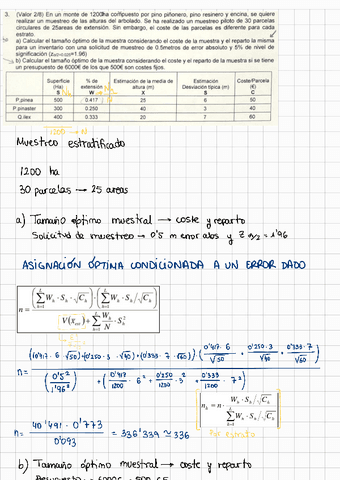 3. (Valor 2/8) En un monte de 1200ha compuesto por pino piñonero, pino resinero y encina, se quiere
realizar un muestreo de las alturas del arbolado. Se ha realizado un muestreo piloto de 30 parcelas
circulares de 25areas de extensión. Sin embargo, el coste de las parcelas es diferente para cada
estrato.
a) Calcular el tamaño óptimo de la muestra considerando el coste de la muestra y el reparto la misma
para un inventario con una solicitud de muestreo de 0.5metros de error absoluto y 5% de nivel de
significación (zα/2=0.025=1.96)
b) Calcular el tamaño óptimo de la muestra considerando el coste y el reparto de la muestra si se tiene
un presupuesto de 6000€ de los que 500€ son costes fijos.
Superficie (Ha) S | % de extensión W | Estimación de la media de altura (m) X | Estimación Desviación típica (m) S | Coste/Parcela (€) C
P.pinea 500 0.417 25 6 50
P.pinaster 300 0.250 40 3 40
Q.ilex 400 0.333 20 7 60
1200 → N
Muestreo estratificado
1200 ha
30 parcelas → 25 areas
a) Tamaño óptimo muestral → coste y reparto
Solicitud de muestreo → 0'5 m error abs y Z α/2 = 1'96
ASIGNACIÓN ÓPTIMA CONDICIONADA A UN ERROR DADO
n = (∑ Wh · Sh · √Ch) · (∑ Wh · Sh / √Ch) / (V(x̄est) + ∑ Wh/N · Sh²)
n = (0'417 · 6 · √50 + 0'250 · 3 · √40 + 0'333 · 7 · √60) · (0'417 · 6 / √50 + 0'250 · 3 / √40 + 0'333 · 7 / √60)
(0'5² / 1'96²) + (0'417/1200 · 6² + 0'250/1200 · 3² + 0'333/1200 · 7²)
nh = n · Wh · Sh / √Ch / ∑ Wh · Sh / √Ch
Por estrato
n = 40'491 · 0'773 / 0'093 = 336'339 ≈ 336
b) Tamaño óptimo muestral → coste y reparto